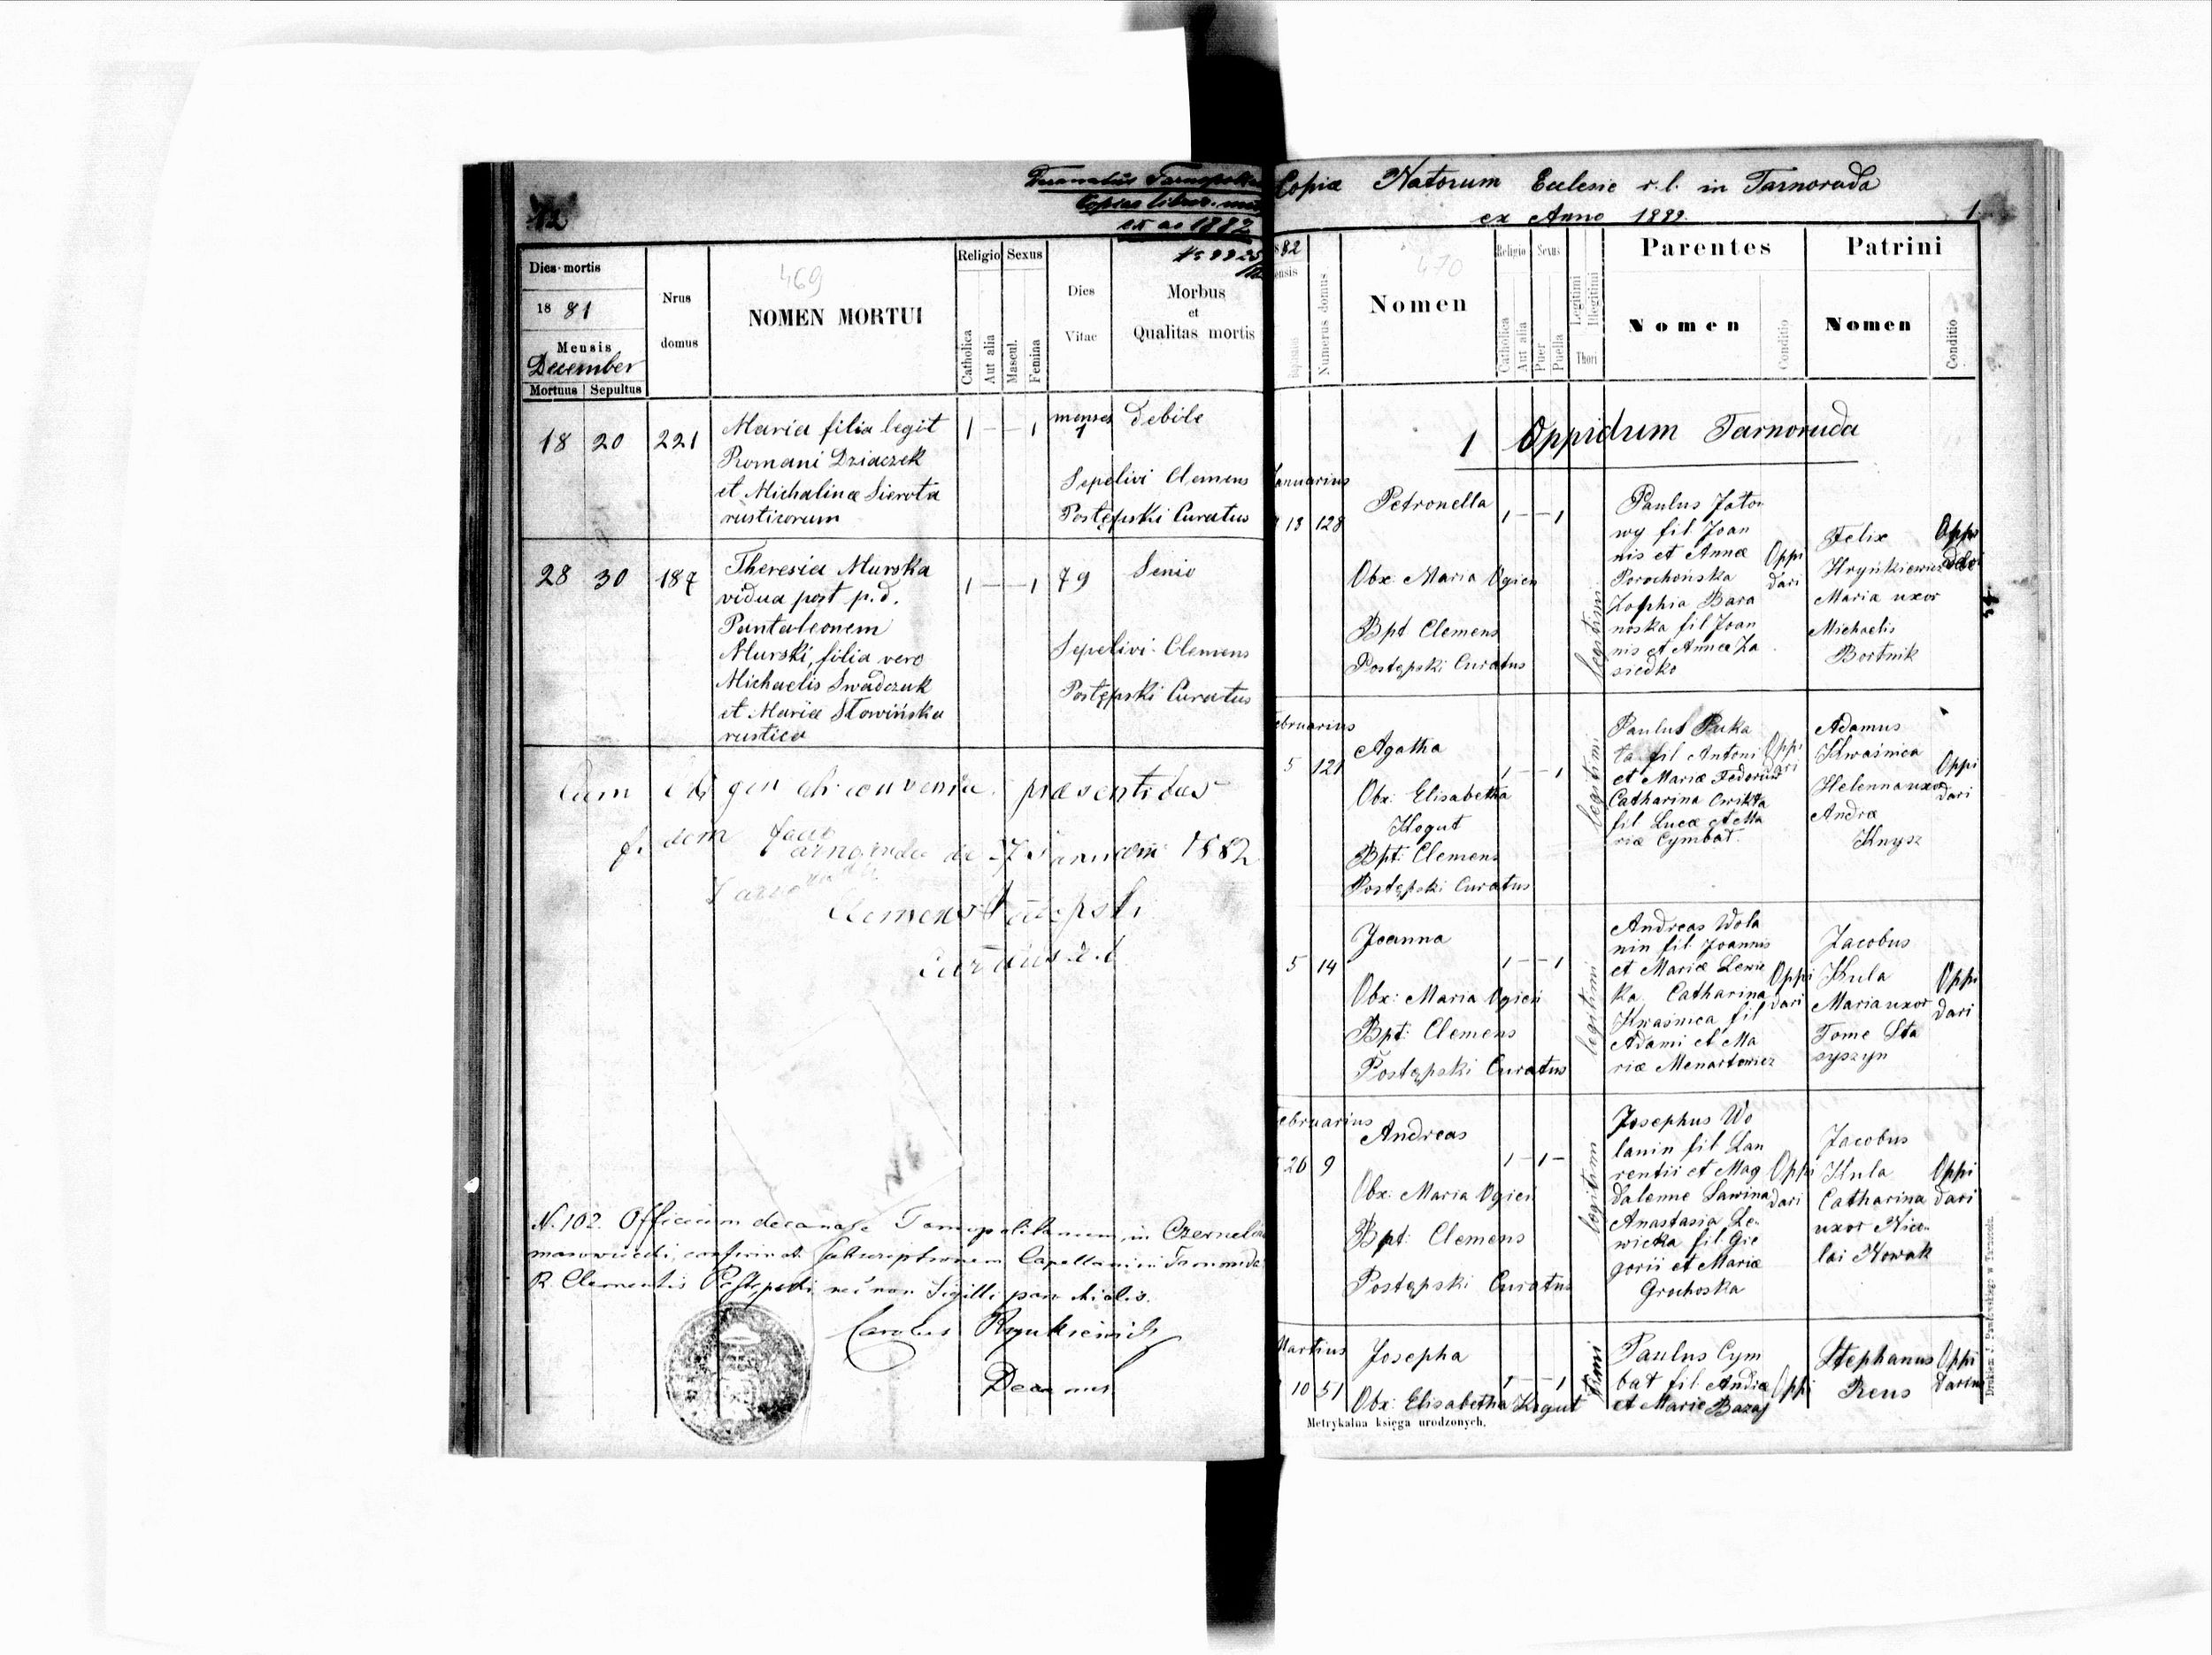 12
Decanatus Tarnopol
Copia libror.
ex ao 1882
Dies mortis
1881
Mensis
December
Mortuus Sepultus
Nrus domus
469
NOMEN MORTUI
Religio
Catholica
Aut alia
Sexus
Mascul.
Femina
Dies Vitae
Morbus
et
Qualitas mortis
18 20 221 Maria filia legit 1 – – 1 menses 1 Debile
Romani Dziaczek
et Michalinæ Sierota
rusticorum
Sepelivi Clemens
Postępski Curatus
28 30 187 Theresia Murska 1 – – 1 79 Senio
vidua post p.d.
Pantaleonem
Murski, filia vero
Michaelis Swadczuk
et Mariæ Słowińska
rustica
Sepelivi Clemens
Postępski Curatus
Cum præsentibus
fidem
Januarii 1882
Clemens Postępski
Curatus r.l.
N. 102. Officium decanale Tarnopolitanum in
confirmat subscriptionem Capellani in Tarnoruda
R. Clementis Postępski nec non Sigilli parochialis.
Carolus
Decanus
Copia Natorum Ecclesie r.l. in Tarnoruda
ex Anno 1882.
1
82
ensis
Numerus domus
470
Nomen
Religio
Catholica
Aut alia
Sexus
Puer
Puella
Legitimi
Illegitimi
Thori
Parentes
Nomen
Conditio
Patrini
Nomen
Conditio
1 Oppidum Tarnoruda
Januarius
13 128 Petronella 1 – – 1
Obx: Maria Ogien
Bpt Clemens
Postępski Curatus
legitimi
Paulus Jato
wy fil Joan
nis et Annæ
Porochońska
Zophia Bara
noska fil Joan
nis et Annæ Za
siedko
Oppi
dari
Felix
Hryńkiewicz
Maria uxor
Michaelis
Bortnik
Februarius
5 121 Agatha 1 – – 1
Obx: Elisabetha
Kogut
Bpt: Clemens
Postępski Curatus
legitimi
Paulus Puka
ta fil Antoni
et Mariæ
Catharina Cwikła
fil Lucæ et Ma
riæ Cymbał.
Oppi
dari
Adamus
Kwaśnica
Helenna uxor
Andræ
Knysz
Oppi
dari
5 14 Joanna 1 – – 1
Obx: Maria Ogien
Bpt: Clemens
Postępski Curatus
legitimi
Andreas Wola
nin fil Joannis
et Mariæ Lewic
ka Catharina
Kwaśnica fil
Adami et Ma
riæ Menartowicz
Oppi
dari
Jacobus
Kula
Maria uxor
Tome Sta
syszyn
Oppi
dari
Februarius
26 9 Andreas 1 – 1 –
Obx: Maria Ogien
Bpt: Clemens
Postępski Curatus
legitimi
Josephus Wo
lanin fil Lau
rentii et Mag
dalenne Sawina
Anastasia Le
wicka fil Gre
gorii et Mariæ
Grochoska
Oppi
dari
Jacobus
Kula
Catharina
uxor Nico
lai Nowak
Oppi
dari
Martius
10 51 Josepha 1 – – 1
Obx: Elisabetha Kogut
Paulus Cym
bał fil Andræ
et Mariæ Bazaj
Oppi
Stephanus
Reus
Oppi
darius
Metrykalna księga urodzonych.
Drukiem J. Pawłowskiego w Tarnopolu.